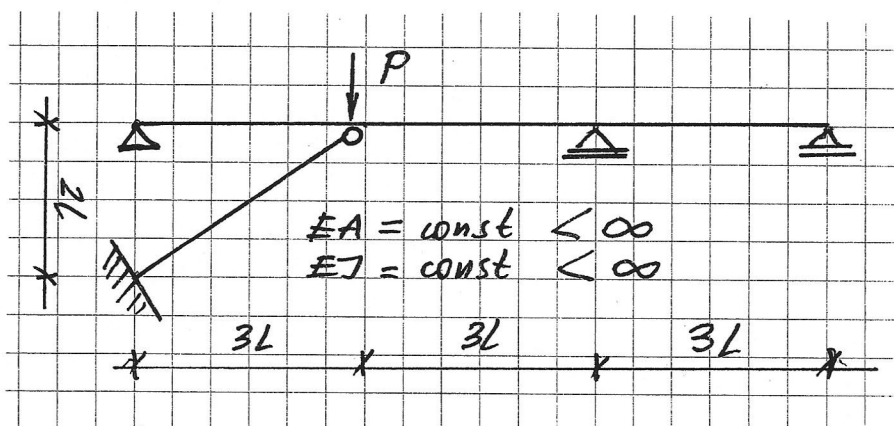 P
2L
EA = const < ∞
EJ = const < ∞
3L 3L 3L